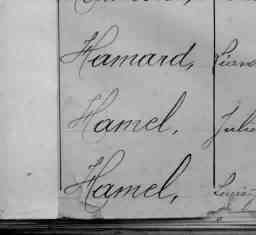 Hamard,
Hamel, Julie
Hamel, Louis